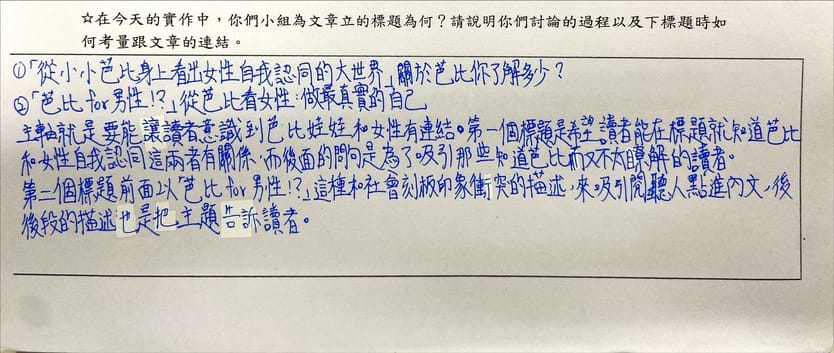 ☆在今天的實作中，你們小組為文章立的標題為何？請說明你們討論的過程以及下標題時如
何考量跟文章的連結。
①「從小小芭比身上看出女性自我認同的大世界」關於芭比你了解多少？
②「芭比for男性!?」從芭比看女性：做最真實的自己
主軸就是要能讓讀者意識到芭比娃娃和女性有連結。第一個標題是希望讀者能在標題就知道芭比
和女性自我認同這兩者有關係，而後面的問句是為了吸引那些知道芭比而又不太瞭解的讀者。
第二個標題前面以「芭比for男性!?」這種和社會刻板印象衝突的描述，來吸引閱聽人點進內文，後
後段的描述也是把主題告訴讀者。